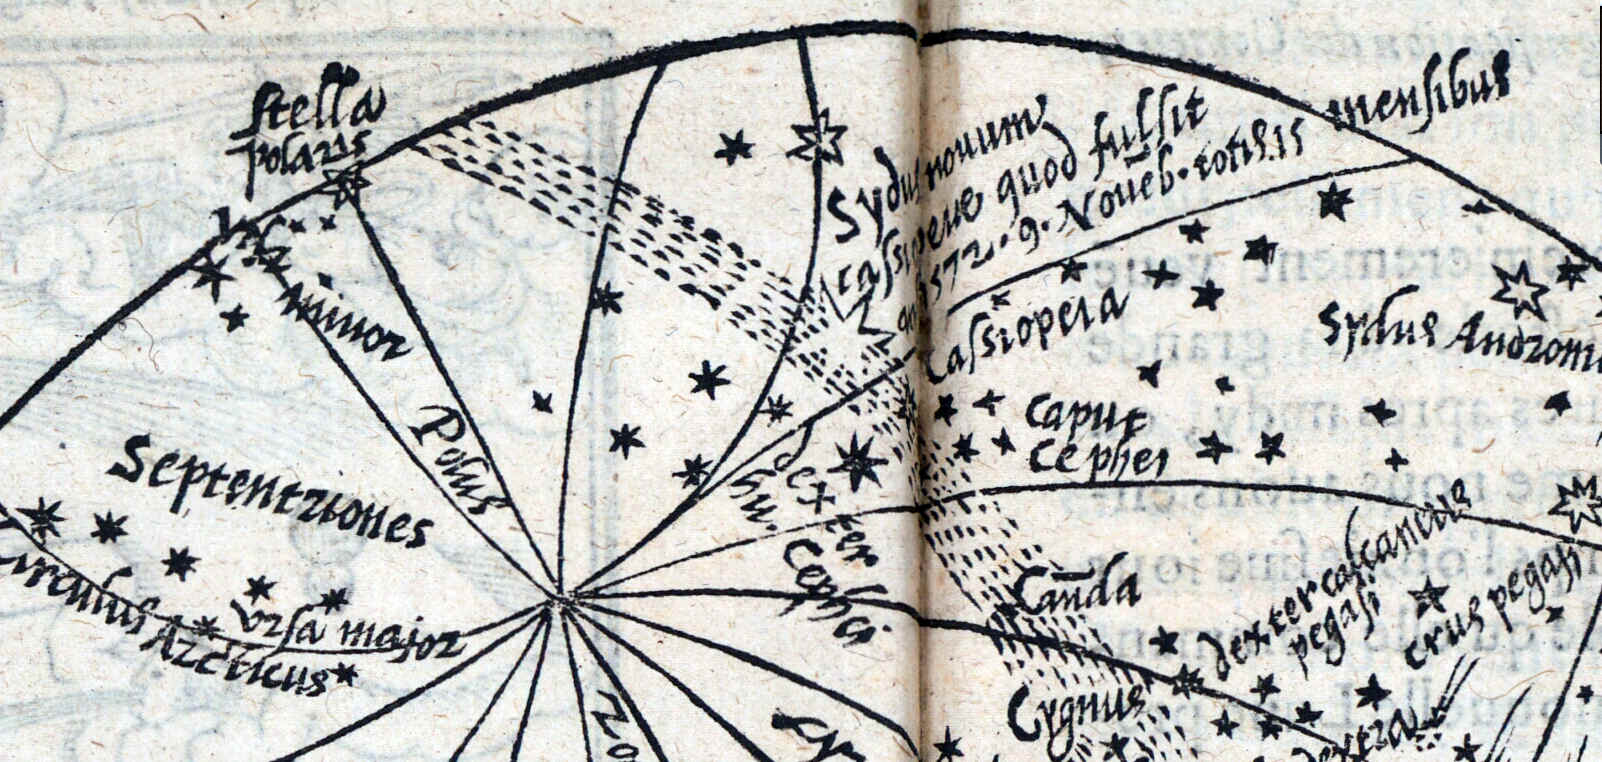 Stella
polaris
Sydus novum
cassiopeue quod fulsit
1572 · 9 · Noueb · totis · 15 mensibus
Vrsa
Minor
Cassiopeia
Sydus Andromi
Polus
Caput
Cephei
Septentriones
dexter
hu.
Cephei
Cauda
dexter calcaneus
pegasi
crus pegasi
Circulus Arcticus
Vrsa major
Cygnus
dextra
Zo